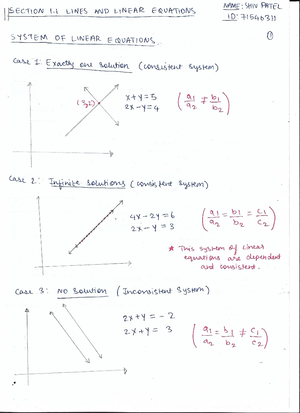 SECTION 1.1 LINES AND LINEAR EQUATIONS
NAME: SHIV PATEL
ID: 71546311
SYSTEM OF LINEAR EQUATIONS.
①
Case 1: Exactly one solution (consistent system)
x+y=5
2x-y=4
(a1/a2 ≠ b1/b2)
Case 2: Infinite solutions (consistent system)
4x-2y=6
2x-y=3
(a1/a2 = b1/b2 = c1/c2)
* This system of linear
equations are dependent
and consistent.
Case 3: NO Solution (Inconsistent System)
2x+y = -2
2x+y = 3
(a1/a2 = b1/b2 ≠ c1/c2)